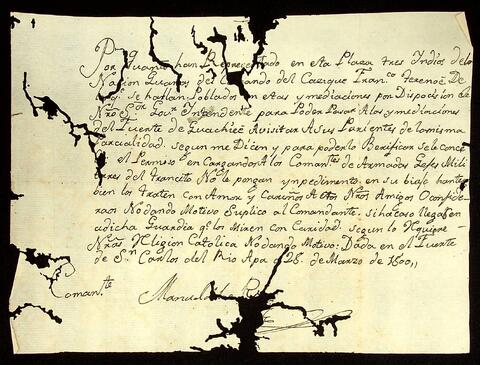 Por quanto han Representado en esta Plaza tres Indios de la
Nasion Guanas del mando del Casique Franco
se hallan Poblados en estas ynmediaciones por Disposición de
Nro Sor Govr Intendente para Poder Pasar A las ynmediaciones
del Fuente de A visitar A sus Parientes de la misma
Parcialidad. segun me Dicen y para poderlo Berificar se le conce
el Permiso en Cargando A los Comantes de Armada Gefes Mili
tares del transito No le pongan ynpedimento en su biaje
bien los traten con Amor y Cariños A Nros Amigos
No dando Motivo Suplico al Comandante si hacaso llegasen
a dicha Guardia qe los Miren con Caridad segun lo
Nrãs Religion Catolica No dando Motivo: Dada en el Fuerte
de Sn Carlos del Rio Apa a 28. de Marzo de 1800,,
Comante Manuel